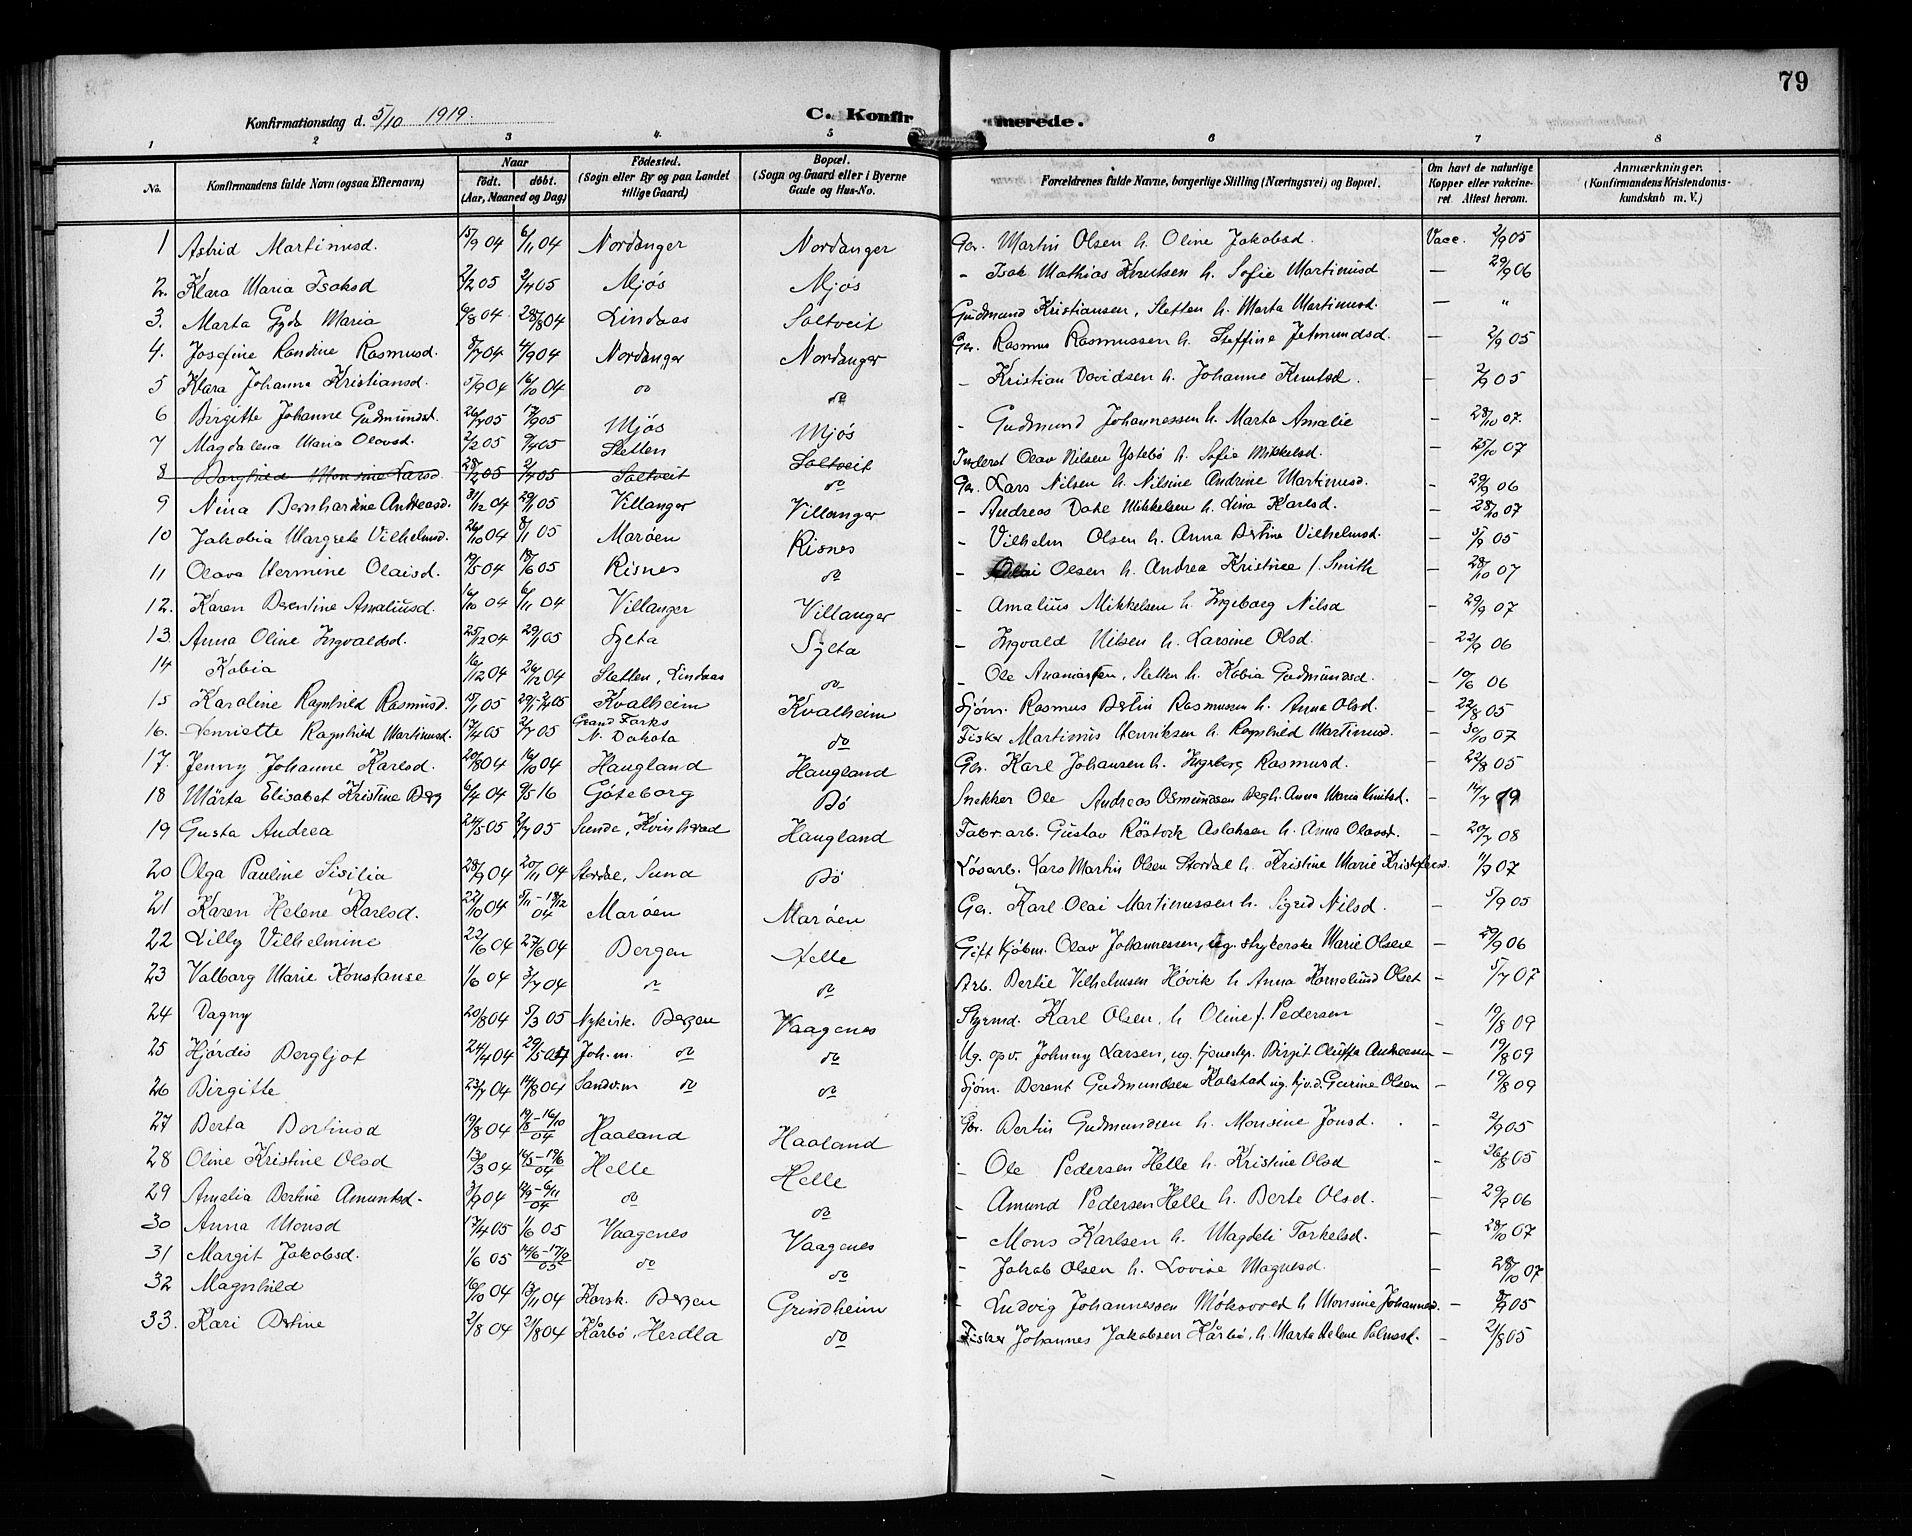 79
Konfirmationsdag d. 5/10 1919. C. Konfirmerede.
1 2 3 4. 5 6 7 8
No. Konfirmandens fulde Navn (ogsaa Efternavn) Naar født. døbt. (Aar, Maaned og Dag) Fødested. (Sogn eller By og paa Landet tillige Gaard) Bopæl. (Sogn og Gaard eller i Byerne Gade og Hus-No. Forældrenes fulde Navne, borgerlige Stilling (Næringsvei) og Bopæl. Om havt de naturlige Kopper eller vakcineret. Attest herom. Anmærkninger. (Konfirmandens Kristendomskundskab m. V.)
1 Astrid Martinusd. 15/9 04 6/11 04 Nordanger Nordanger Gbr. Martin Olsen h. Oline Jakobsd. Vacc. 2/9 05
2. Klara Maria Isaksd 2/2 05 2/4 05 Mjøs Mjøs - Isak Mathias Knutsen h. Sofie Martinusd — 29/9 06
3. Marta Gyda Maria 6/8 04 28/8 04 Lindaas Saltveit Gudmund Kristiansen, Sletten h. Marta Martinusd. — "
4. Josefine Randine Rasmusd. 8/7 04 4/9 04 Nordanger Nordanger Gbr. Rasmus Rasmussen h. Steffine Jetmundsd. — 2/9 05
5 Klara Johanna Kristiansd. 5/9 04 16/10 04 do do - Kristian Davidsen h. Johanne Knutsd. — 2/9 05
6 Birgitte Johanne Gudmundsd. 26/7 05 17/9 05 Mjøs Mjøs - Gudmund Johannessen h. Marta Amalie — 28/10 07.
7 Magdalena Maria Olavsd. 2/2 05 9/4 05 Sletten Saltveit Inderst Olav Nilsen Ystebø h. Sofie Mikkelsd. — 25/10 07
8 Borghild Monsine Larsd. 28/2 05 2/4 05 Saltveit do Gbr. Lars Nilsen h. Nilsine Andrine Martinusd. — 29/9 06
9 Nina Bernhardine Andreasd. 31/12 04 29/1 05 Villanger Villanger - Andreas Date Mikkelsen h. Lina Karlsd. — 28/10 07
10 Jakobia Margrete Vilhelmsd. 26/10 04 8/1 05 Marøen Risnes - Vilhelm Olsen h. Anna Bertine Vilhelmsd. — 5/9 05
11 Olava Hermine Olaisd. 19/5 04 18/6 05 Risnes do - Olai Olsen h. Andrea Kristine f. Smith — 28/10 07
12. Karen Berntine Amaliusd. 16/10 04 6/11 04 Villanger Villanger - Amalius Mikkelsen h. Ingeborg Nilsd — 29/9 07
13. Anna Oline Ingvaldsd. 25/12 04 29/1 05 Sylta Sylta - Ingvald Nilsen h. Larsine Olsd. — 22/9 06
14 Kobia 16/12 04 26/12 04 Sletten, Lindaas do - Ole Ananiassen, Sletten h. Kobia Gudmundsd. — 10/6 06
15 Karoline Ragnhild Rasmusd. 15/1 05 Kvalheim Kvalheim Sjøm. Rasmus Bertin Rasmussen h. Anna Olsd. — 22/8 05
16. Henriette Ragnhild Martinusd. 17/4 05 2/7 05 Grand Forks N. Dakota do Fisker Martinus Henriksen h. Ragnhild Martinusd. — 30/10 07
17. Jenny Johanne Karlsd. 20/8 04 16/10 04 Haugland Haugland Gbr. Karl Johansen h. Ingeborg Rasmusd. — 22/8 05
18 Märta Elisabet Kristine Berg 6/4 04 9/5 16 Göteborg Bø Snekker Ole Andreas Osmundsen Berg h. Anna Maria Knutsd. — 14/7 19
19 Gusta Andrea 24/5 05 2/7 05 Sunde, Kvinherad Haugland Fabr.arb. Gustav Røstock Aslaksen h. Anna Olavsd. — 20/7 08
20 Olga Pauline Sisilia 28/9 04 20/11 04 Stordal, Sund Bø Løsarb. Lars Martin Olsen Stordal h. Kristine Marie Kristoffersd. — 1/9 07
21 Karen Helene Karlsd. 22/10 04 5/11 - 18/12 04 Marøen Marøen Gbr. Karl Olai Martinussen h. Sigrid Nilsd. — 5/9 05
22 Lilly Vilhelmine 22/6 04 27/6 04 Bergen Helle Gift Kjøbm. Olav Johannessen, ug. strykerske Marie Olsen — 29/9 06
23 Valborg Marie Konstanse 1/6 04 3/7 04 do do Arb. Bertie Vilhelmsen Høvik h Anna Kornelius Olset - 5/7 07
24 Dagny 20/8 04 5/3 05 Nykirk. Bergen Vaagenes Styrmd. Karl Olsen, h Oline f. Pedersen - 19/8 09
25 Hjördis Bergljot 24/4 04 Joh.m. do do Ug. opv. Johnny Larsen, ug. tjenestep. Birgit Oluffa Andreasen - 19/8 09
26 Birgitte 23/7 04 14/8 04 Sandv.m do do Sjøm. Berent Gudmundsen Kolstad ug. Gurine Olsen - 19/8 09
27 Berta Bertinsd 19/8 04 Haaland Haaland Gbr. Bertin Gudmundsen h. Monsine Jonsd. - 2/9 05
28 Oline Kristine Olsd 13/3 04 Helle Helle - Ole Pedersen Helle h. Kristine Olsd - 26/8 05
29 Amalia Bertine Amundsd. 3/9 04 do do - Amund Pedersen Helle h. Berte Olsd. — 29/9 06
30 Anna Monsd 17/4 05 1/6 05 Vaagenes Vaagenes - Mons Karlsen h. Magdeli Torkelsd. — 28/10 07
31 Margit Jakobsd. 1/6 05 do do - Jakob Olsen h. Lovise Magnesd. — 28/10 07
32 Magnhild 16/10 04 13/11 04 Korsk. Bergen Grindheim - Ludvig Johannessen h Monsine Johannesd. - 9 05
33. Kari Bertine 2/8 04 21/8 04 Kårbø, Herdla do Fisker Johannes Jakobsen Kårbø, h. Marta Helene Palmesd. — 21/8 05